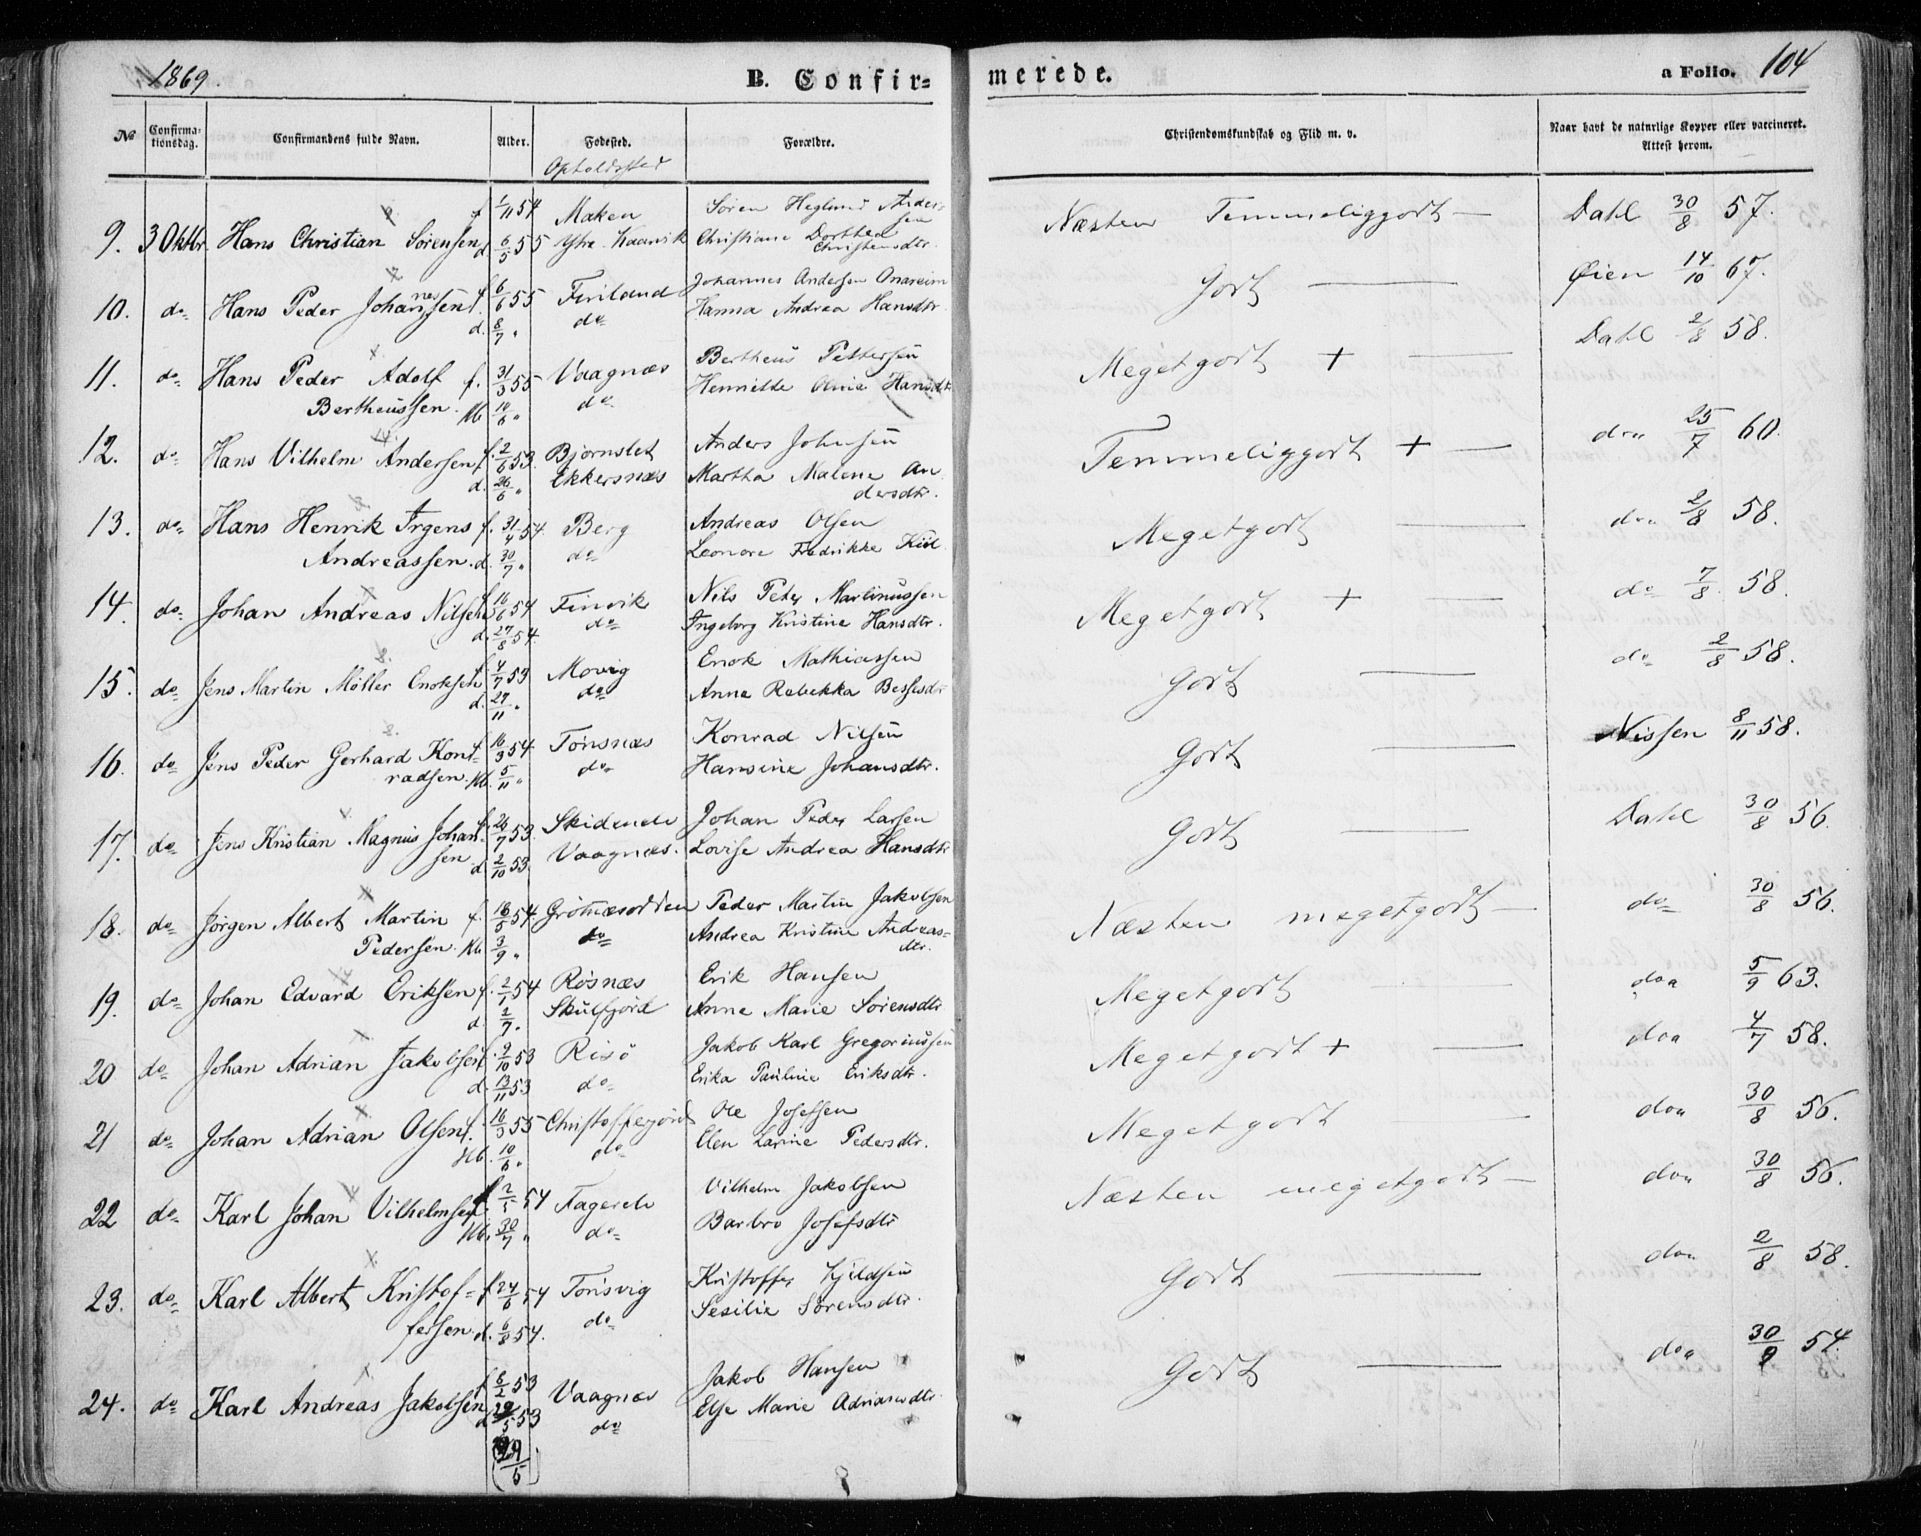 1869.
B. Confir=
merede.
a Folio. 104
No
Confirma-
tionsdag.
Confirmandens fulde Navn.
Alder.
Fødested.
Opholdssted
Forældre.
Christendomskundskab og Flid m. v.
Naar havt de naturlige Kopper eller vaccineret.
Attest herom.
f 1/11 54 Maken Søren Heglund Ander-
sen
9. 3 Oktbr. Hans Christian Sørensen d. 6/5 55 Ytre Kaarvik Christiane Dorthea
Christensdtr. Næsten Temmeliggodt — Dahl 30/8 57.
10. do Hans Peder Johannessen f. 6/6 55 Finland Johannes Andersen
d. 8/7 " do Hanna Andrea Hansdtr. Godt — Øien 14/10 67.
11. do Hans Peder Adolf f. 31/3 55 Vaagnæs Bertheus Pettersen
Bertheussen. Hb. 10/6 " do Henrikke Anie Hansdtr Megetgodt + — Dahl 2/8 58.
12. do Hans Vilhelm Andersen f. 2/6 53. Bjørnslet Anders Johnsen
d. 26/6 " Ekkersnæs Martha Malene An
dersdtr. Temmeliggodt + — do 25/7 60.
13. do Hans Henrik Irgens f. 31/4 54. Berg Andreas Olsen
Andreassen. d. 30/7 " do Leonore Fredrikke Kiil Megetgodt — do 2/8 58.
14. do Johan Andreas Nilsen f. 16/6 54 Finvik Nils Peter Martinussen
d. 27/8 54. do Ingeborg Kristine Hansdtr. Megetgodt + — do 7/8 58.
15. do Jens Martin Møller Enoksen f. 4/7 53 Movig Enok Mathiassen
d. 27/11 " do Anne Rebekka Bessesdtr Godt — do 2/8 58.
16. do Jens Peder Gerhard Kon= f. 16/3 54. Tønsnæs Konrad Nilsen
radsen. Hb. 5/11 " do Hansine Johansdtr. Godt — Nissen 8/11 58.
17. do Jens Kristian Magnus Johan f. 26/7 53. Skidenelv Johan Peder Larsen
sen d. 2/10 53. Vaagnæs. Lovise Andrea Hansdtr Godt — Dahl 30/8 56.
18. do Jørgen Albert Martin f. 18/5 54. Grøtnæsodden Peder Martin Jakobsen
Pedersen. Hb. 3/9 " do Andrea Kristine Andreas=
dtr. Næsten megetgodt — do 30/8 56.
19. do Johan Edvard Eriksen f. 2/1 54 Røsnæs Erik Hansen
d. 2/7 " Skulfjord Anne Marie Sørensdtr Megetgodt — do 5/9 63.
20 do Johan Adrian Jakobsen f. 2/10 53 Risø Jakob Karl Gregoriussen
d. 13/11 53 do Erika Pauline Eriksdtr. Megetgodt + — do 4/7 58.
21 do Johan Adrian Olsen f. 16/3 55 Christofferjord Ole Josefsen
Hb. 10/6 " do Elen Larine Pedersdtr. Megetgodt — do 30/8 56.
22 do Karl Johan Vilhelmsen f. 2/5 54 Fagerelv Vilhelm Jakobsen
Hb. 30/7 " do Barbro Josefsdtr Næsten megetgodt — do 30/8 56.
23. do Karl Albert Kristof= f 24/6 54 Tønsvig Kristoffer Kjeldsen
fersen. d. 6/8 54. do Sesilie Sørensdtr. Godt — do 2/8 58.
24. do Karl Andreas Jakobsen f 8/2 53 Vaagnæs Jakob Hansen
d 29/5 53 do Else Marie Adriansdtr. Godt — do 30/9 54.
(29/5)